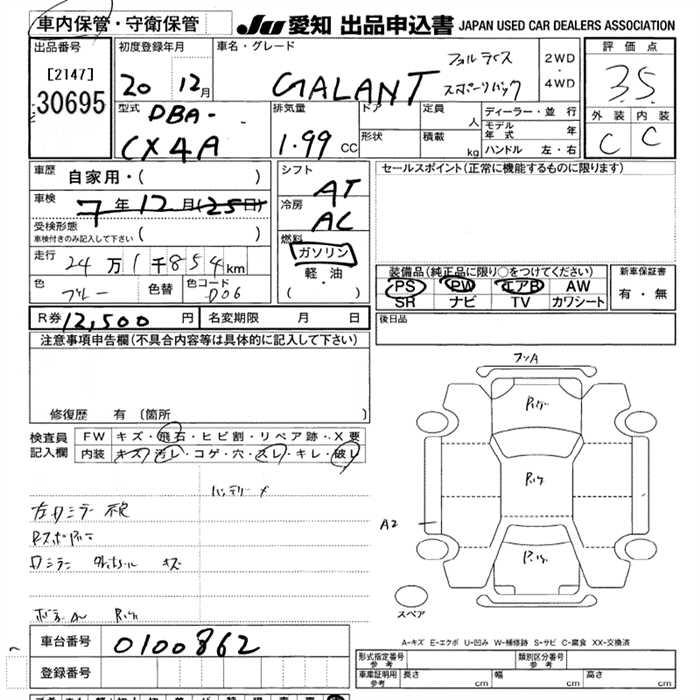 車内保管・守衛保管 JU 愛知 出品申込書 JAPAN USED CAR DEALERS ASSOCIATION
出品番号 初度登録年月 車名・グレード 評価点
[2147] 30695
20 12月 GALANT フォルティス スポーツバック 2WD・4WD 3.5
型式 DBA-CX4A 排気量 1.99 CC ドア 定員 人 ディーラー・並行
形状 積載 kg モデル年式 年 ハンドル 左・右
外装 内装
C C
車歴 自家用・( ) シフト AT セールスポイント(正常に機能するものに限ります)
車検 7年12月(25日) 冷房 AC
受検形態 車検付きのみ記入して下さい ( ) 燃料 ガソリン・軽油 ( ・ )
走行 24万1千854km
装備品(純正品に限り○をつけてください) 新車保証書
PS PW エアB AW 有・無
SR ナビ TV カワシート
色 ブルー 色替 色コード D06
R券 12,500円 名変期限 月 日 後日品
注意事項申告欄(不具合内容等は具体的に記入して下さい)
修復歴 有 (箇所 )
検査員記入欄 FW キズ・飛石・ヒビ割・リペア跡・X要
内装 キズ・汚レ・コゲ・穴・スレ・キレ・破レ
バッテリー
A2
スペア
A-キズ E-エクボ U-凹み W-補修跡 S-サビ C-腐食 XX-交換済
車台番号 0100862
登録番号
形式指定番号 参考 類別区分番号 参考
車庫証明用 参考 長さ cm 幅 cm 高さ cm